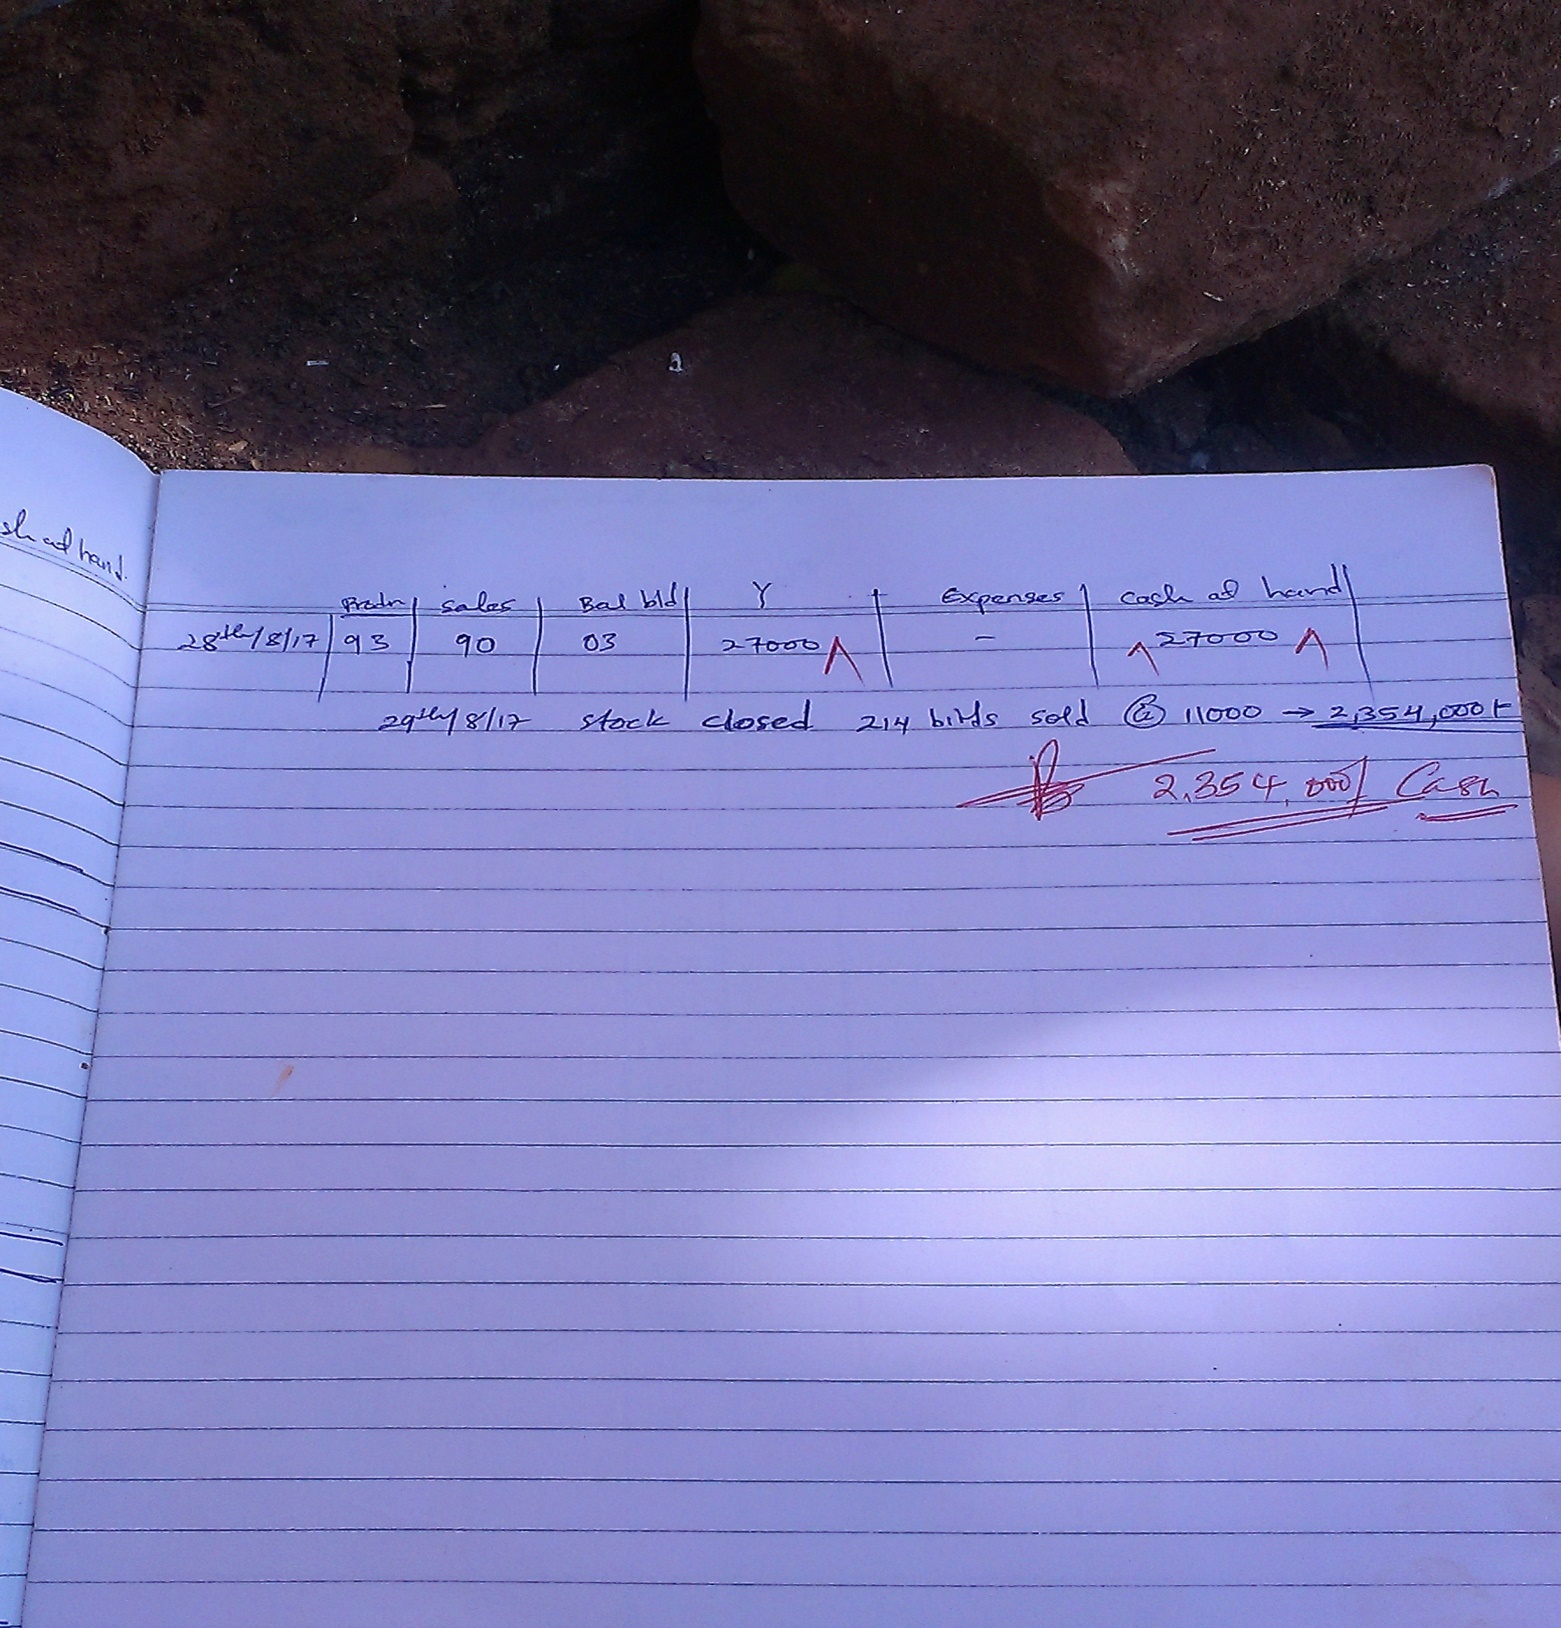 sh at hand.
Prodn sales Bal bld Y Expenses Cash at hand
28th/8/17 93 90 03 27000 - 27000
29th/8/17 stock closed 214 birds sold @ 11000 → 2,354,000/-
2,354,000/ Cash